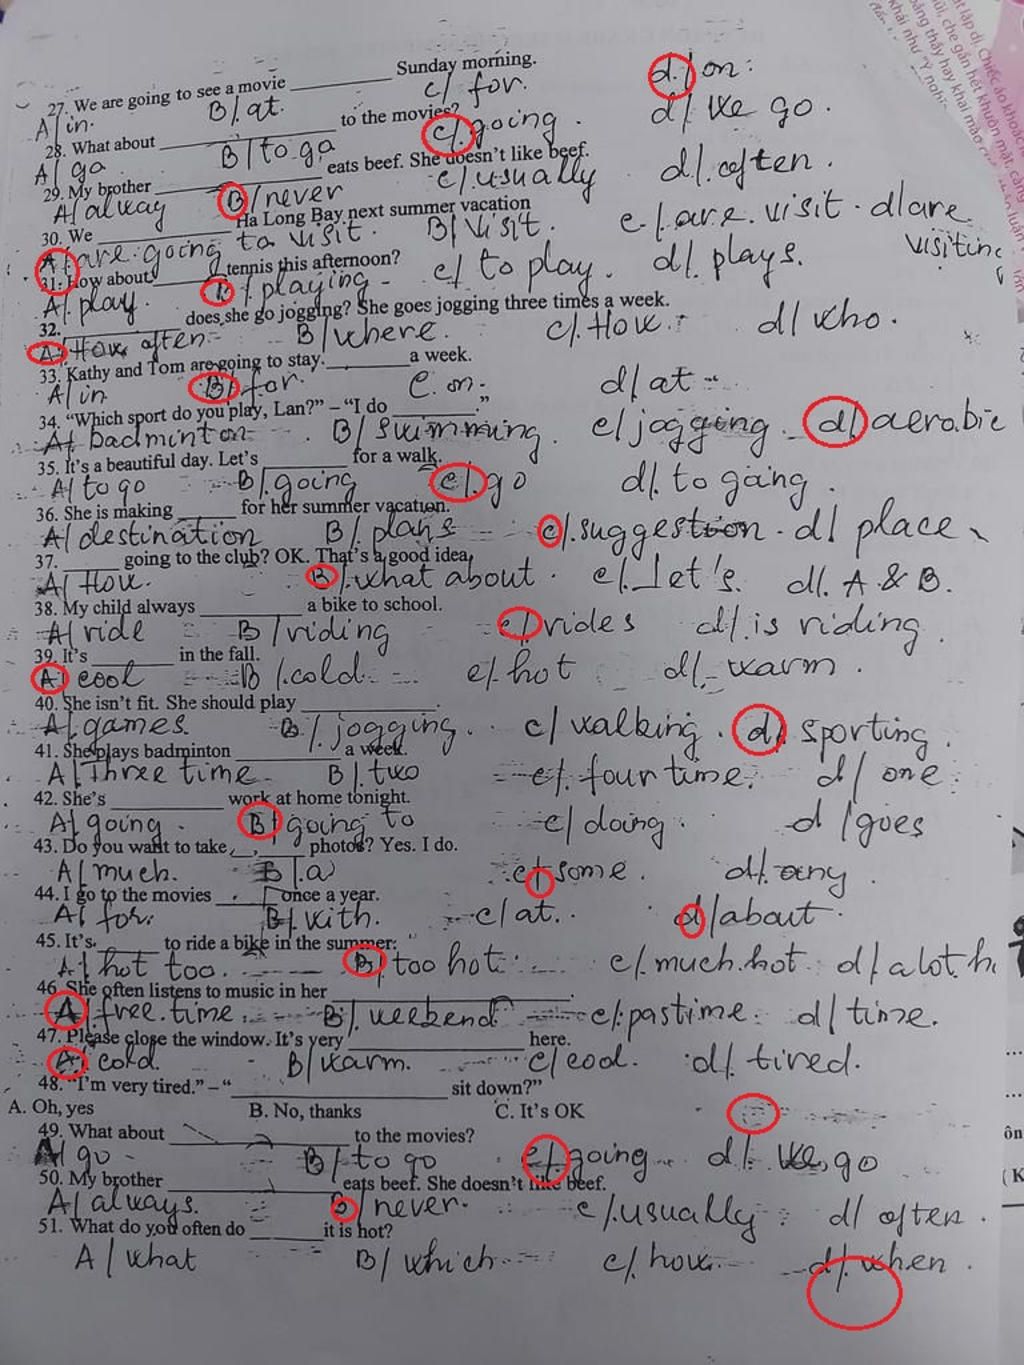 27. We are going to see a movie __________ Sunday morning.
A/ in. B/ at. c/ for. d/ on.
28. What about __________ to the movies?
A/ go B/ to go c/ going. d/ we go.
29. My brother __________ eats beef. She doesn't like beef.
A/ alway B/ never c/. usually d/. often.
30. We __________ Ha Long Bay next summer vacation
A/ are going to visit. B/ Visit. c/. are. visit. d/ are visiting
31. How about __________ tennis this afternoon?
A/. play. B/ playing c/ to play. d/. plays.
32. __________ does she go jogging? She goes jogging three times a week.
A/ How often B/ where. c/. How. d/ who.
33. Kathy and Tom are going to stay. ________ a week.
A/ in B/ for. C. on. d/ at
34. "Which sport do you play, Lan?" – "I do ________."
A/ badminton B/ swimming. c/ jogging. d/ aerobic
35. It's a beautiful day. Let's ________ for a walk.
A/ to go B/. going c/. go d/. to going.
36. She is making ______ for her summer vacation.
A/ destination B/. plans c/. suggestion. d/ place
37. ______ going to the club? OK. That's a good idea.
A/ How. B/. what about. c/. Let's. d/. A & B.
38. My child always __________ a bike to school.
A/ ride B/ riding c/ rides d/. is riding.
39. It's ________ in the fall.
A/ cool B/. cold. c/. hot d/. warm.
40. She isn't fit. She should play ______________.
A/. games. B/. jogging. c/ walking. d/. sporting.
41. She plays badminton __________ a week.
A/ Three time B/. two c/. four time. d/ one
42. She's __________ work at home tonight.
A/ going. B/ going to c/ doing. d/ goes
43. Do you want to take ________ photos? Yes. I do.
A/ much. B/. a c/ some. d/. any.
44. I go to the movies ______ once a year.
A/ for. B/. with. c/ at. d/ about
45. It's. ______ to ride a bike in the summer.
A/. hot too. B/ too hot c/. much. hot d/ a lot. h
46. She often listens to music in her ________________.
A/. free. time. B/. weekend c/. pastime. d/ time.
47. Please close the window. It's very ______________ here.
A/. cold. B/ warm. c/ cool. d/. tired.
48. "I'm very tired." – "__________________ sit down?"
A. Oh, yes B. No, thanks C. It's OK
49. What about __________________ to the movies?
A/ go B/ to go c/. going d/. we go
50. My brother __________________ eats beef. She doesn't like beef.
A/ always. B/ never. c/. usually d/ often.
51. What do you often do ________ it is hot?
A/ what B/ which c/. how. d/. when.